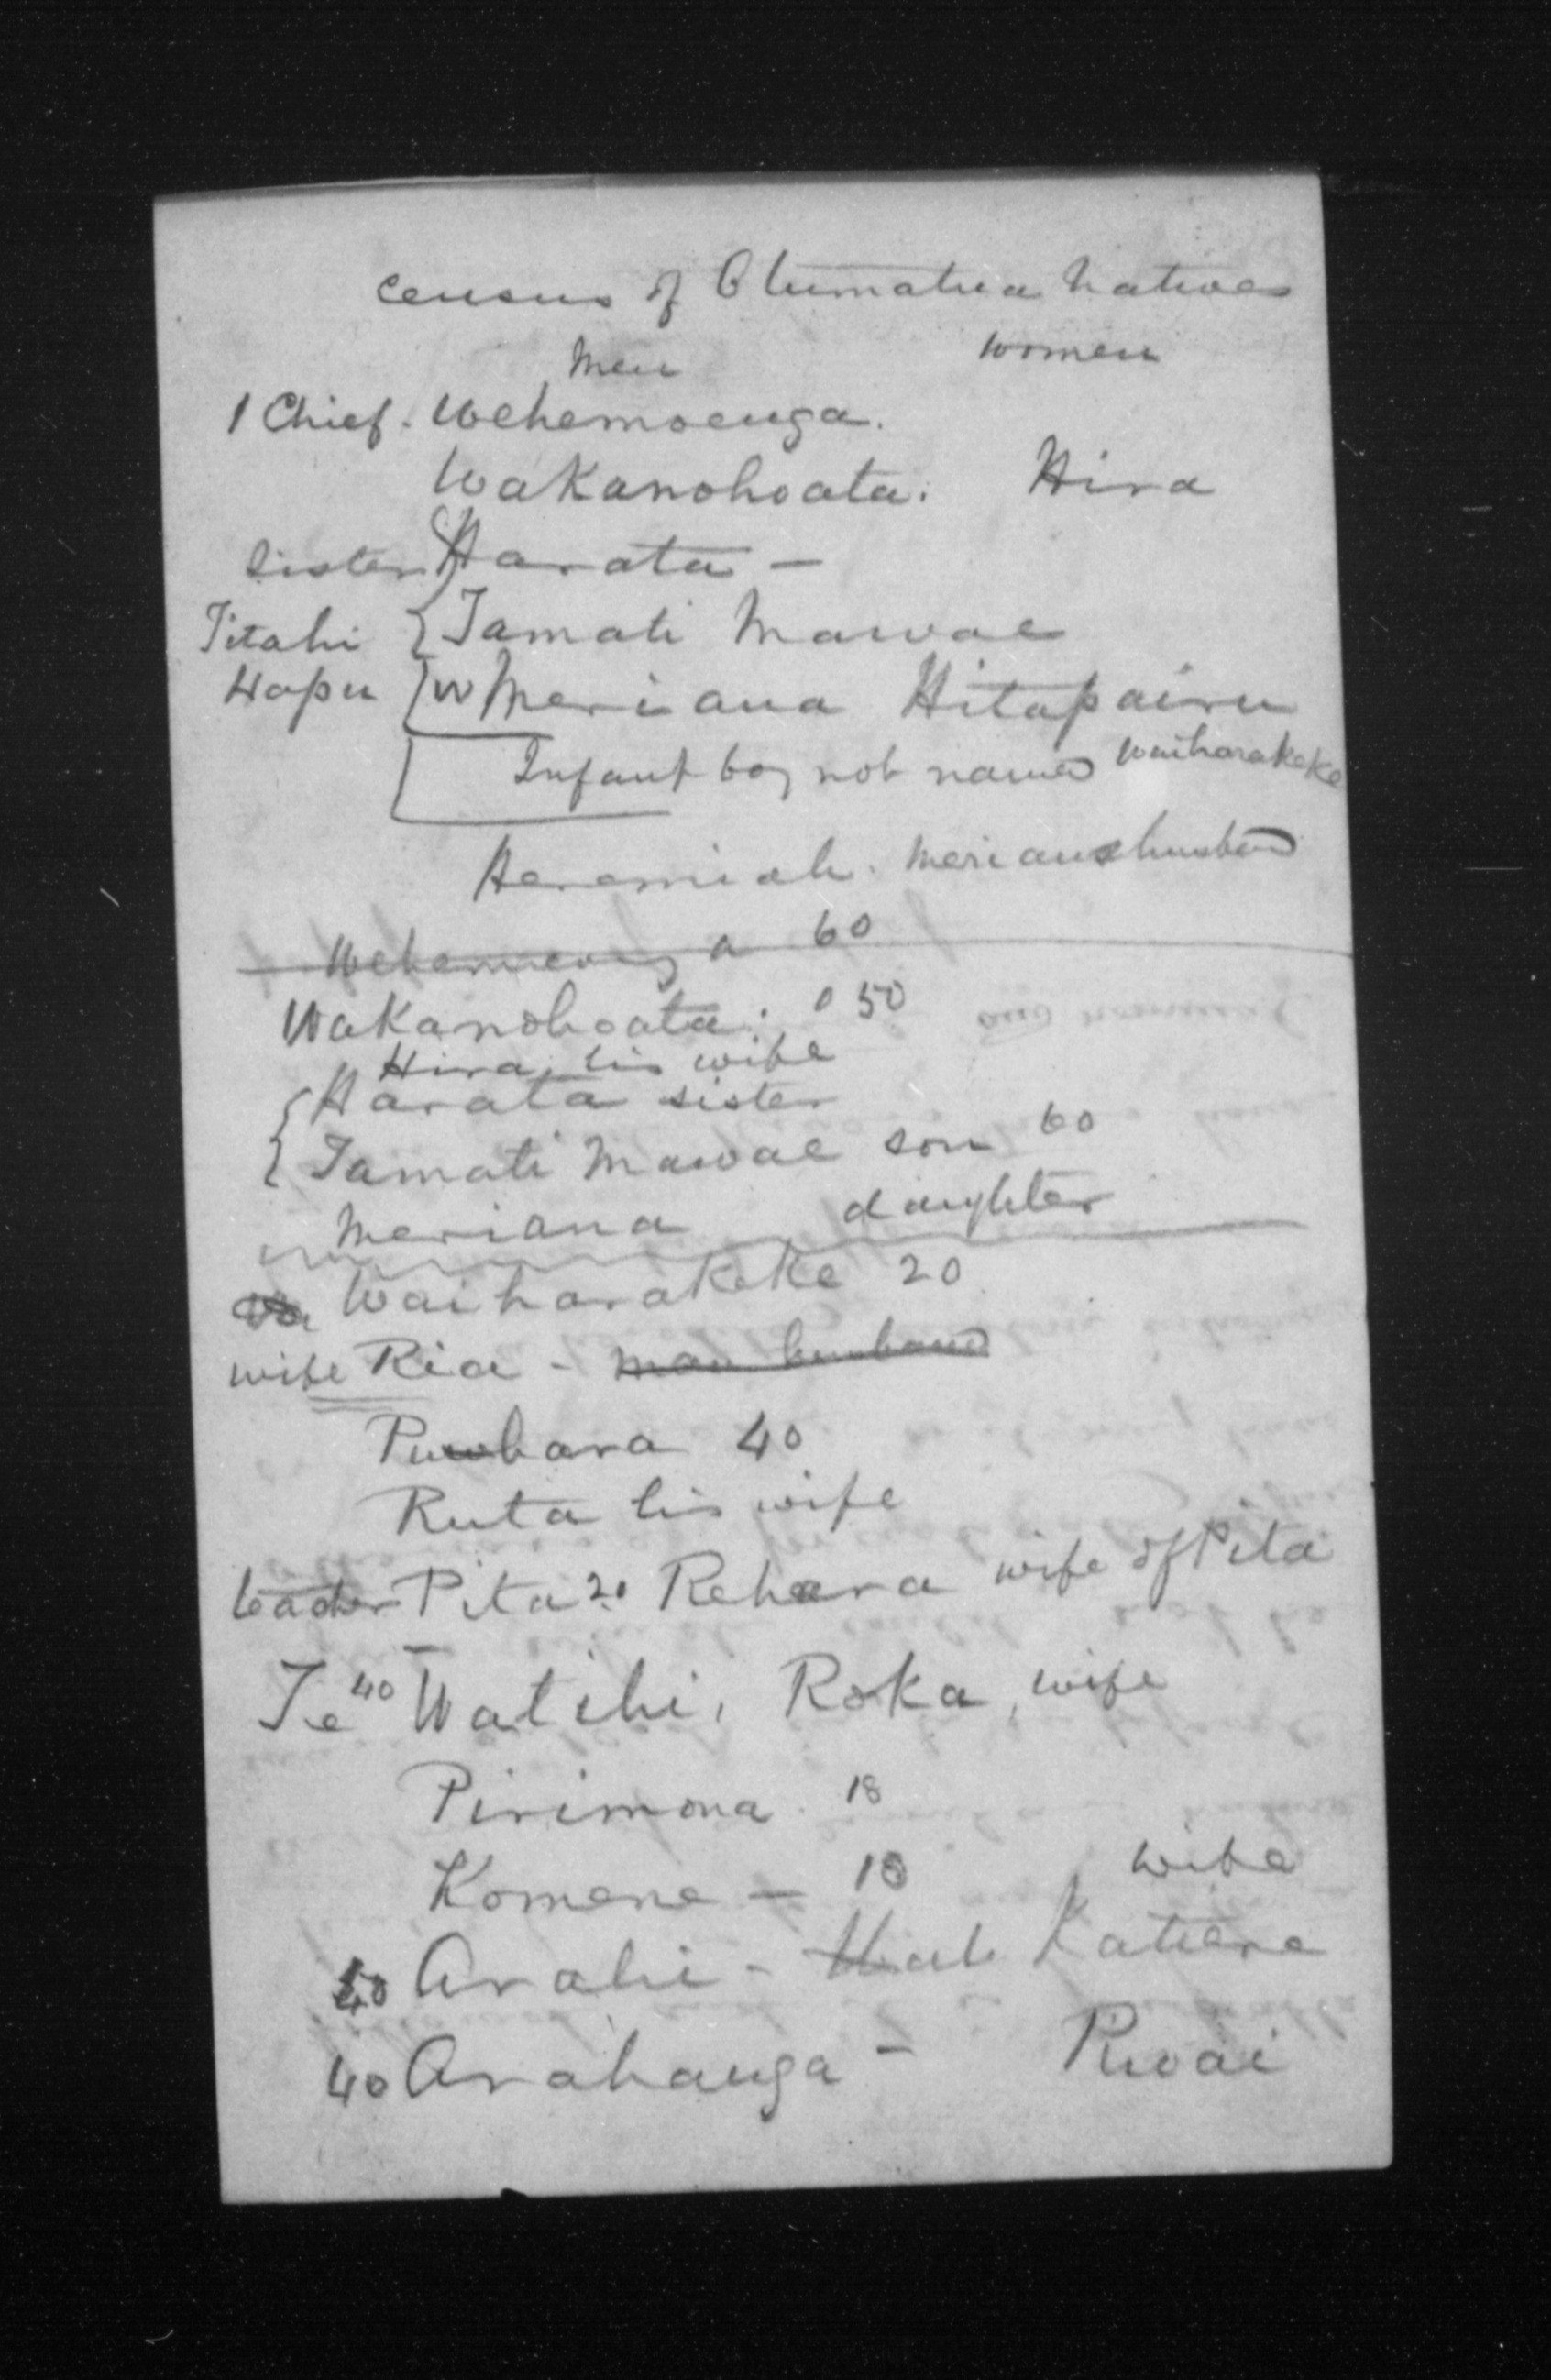 census of Otumatua Natives
Men women
1 Chief. Wehemoenga.
Wakanohoata. Hira
sister Harata —
Titahi { Tamati Mawae
Hapu W Meriana Hitapairu
Infant boy not named Waiharakeke
Heremiah. Merianas husband
Wehemoenga 60
Wakanohoata. 50
Hira, his wife
{ Harata sister
Tamati Mawae son 60
Meriana daughter
Waiharakeke 20
wife Ria - man husband
Puwhara 40
Ruta his wife
teacher Pita 20 Rehara wife of Pita
Te 40 Watihi, Roka, wife
Pirimona. 18
Komene — 18 wife
Arahi - Katiera
40 Arahanga - Riwai